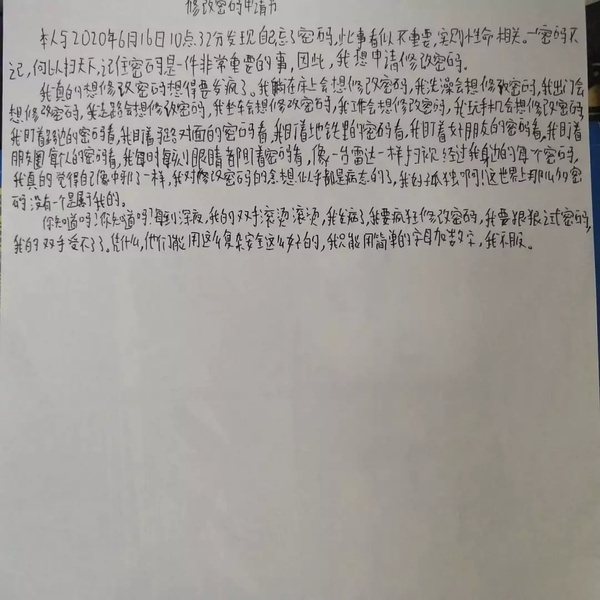 修改密码申请书
本人与2020年6月16日10点32分发现自己忘了密码,此事看似不重要,实则性命相关。一密码不
记,何以扫天下,记住密码是一件非常重要的事,因此,我想申请修改密码。
我真的想修改密码想得要发疯了。我躺在床上会想修改密码,我洗澡会想修改密码,我出门会
想修改密码,我走路会想修改密码,我坐车会想修改密码,我工作会想修改密码,我玩手机会想修改密码,
我盯着路边的密码看,我盯着马路对面的密码看,我盯着地铁里的密码看,我盯着女朋友的密码看,我盯着
朋友圈每个人的密码看,我每时每刻眼睛都盯着密码看,像一台雷达一样扫视经过我身边的每个密码,
我真的觉得自己像中邪了一样,我对修改密码的念想似乎都是病态的了,我好孤独啊!这世界上那么多密
码没有一个是属于我的。
你知道吗?你知道吗?每到深夜,我的双手滚烫滚烫,我发病了,我要疯狂修改密码,我要狠狠试密码,
我的双手受不了了。凭什么,他们能用这么复杂安全这么好的,我只能用简单的字母加数字,我不服。